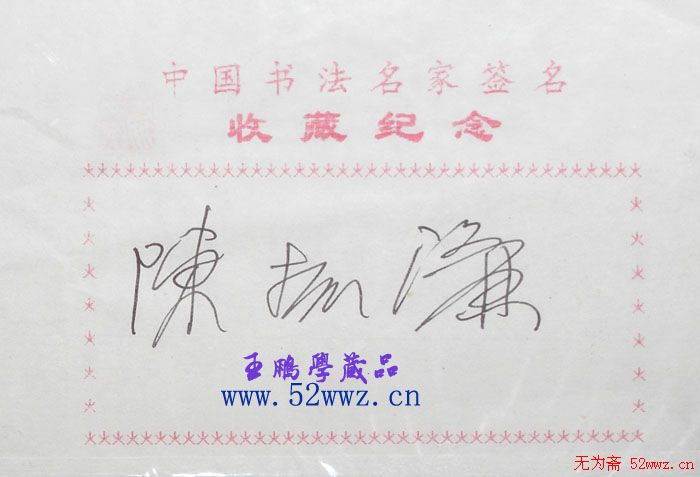 中国书法名家签名
收藏纪念
陳振濂
王鹏學藏品
www.52wwz.cn
无为斋 52wwz.cn